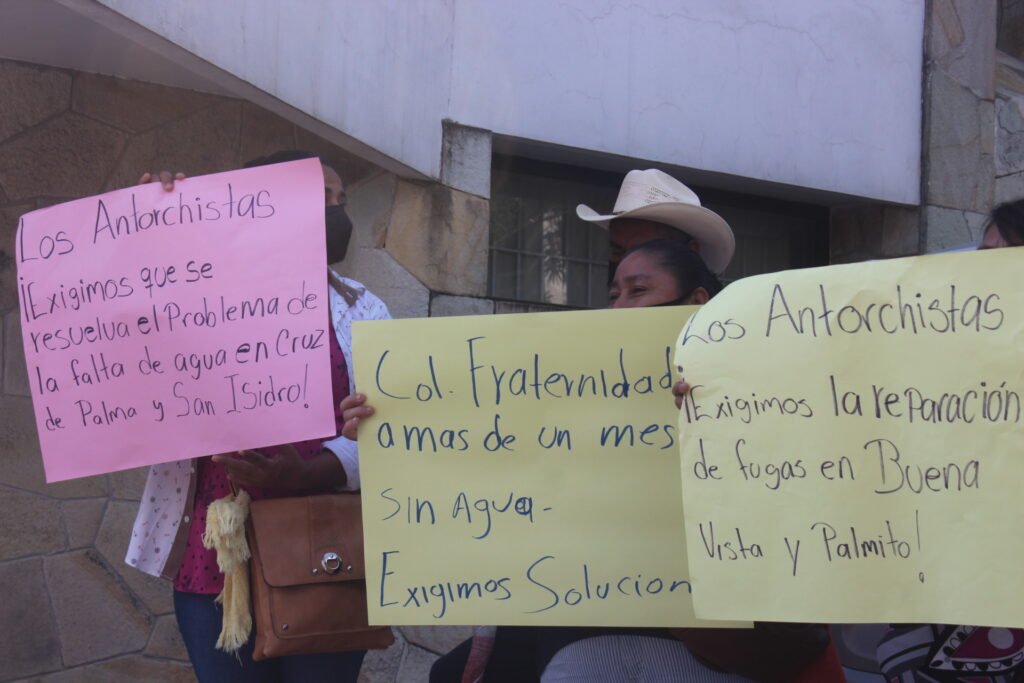 Los Antorchistas
¡Exigimos que se
resuelva el Problema de
la falta de agua en Cruz
de Palma y San Isidro!
Col. Fraternidad
amas de un mes
sin Agua-
Exigimos Solucion
Los Antorchistas
¡Exigimos la reparación
de fugas en Buena
Vista y Palmito!